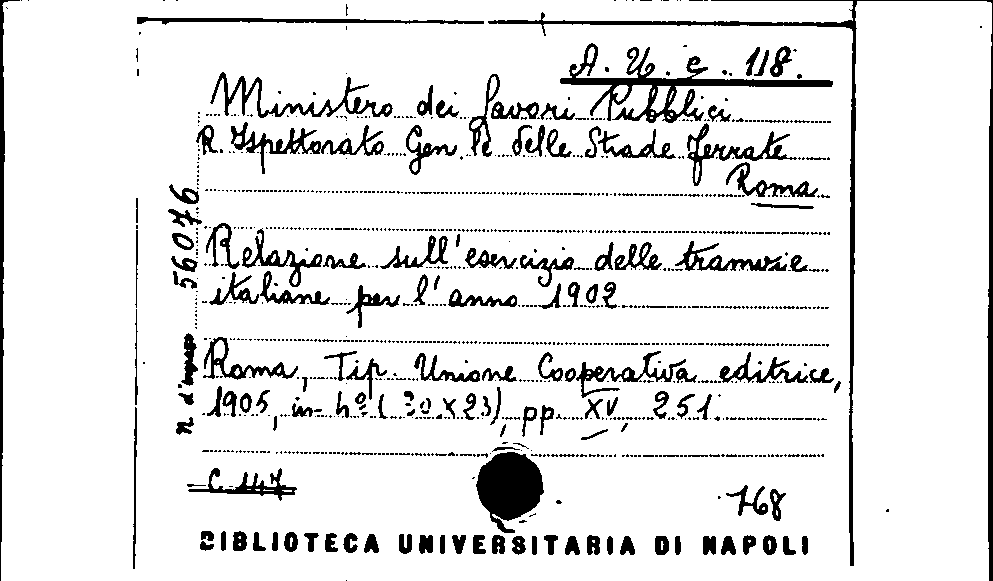 A. U. c. 118.
Ministero dei Lavori Pubblici
R. Ispettorato Gen.le delle Strade Ferrate
Roma
N. d'ingresso 56076
Relazione sull'esercizio delle tramvie
italiane per l'anno 1902
Roma, Tip. Unione Cooperativa editrice,
1905, in-4º (30x23), pp. XV, 251.
C 147
768
BIBLIOTECA UNIVERSITARIA DI NAPOLI